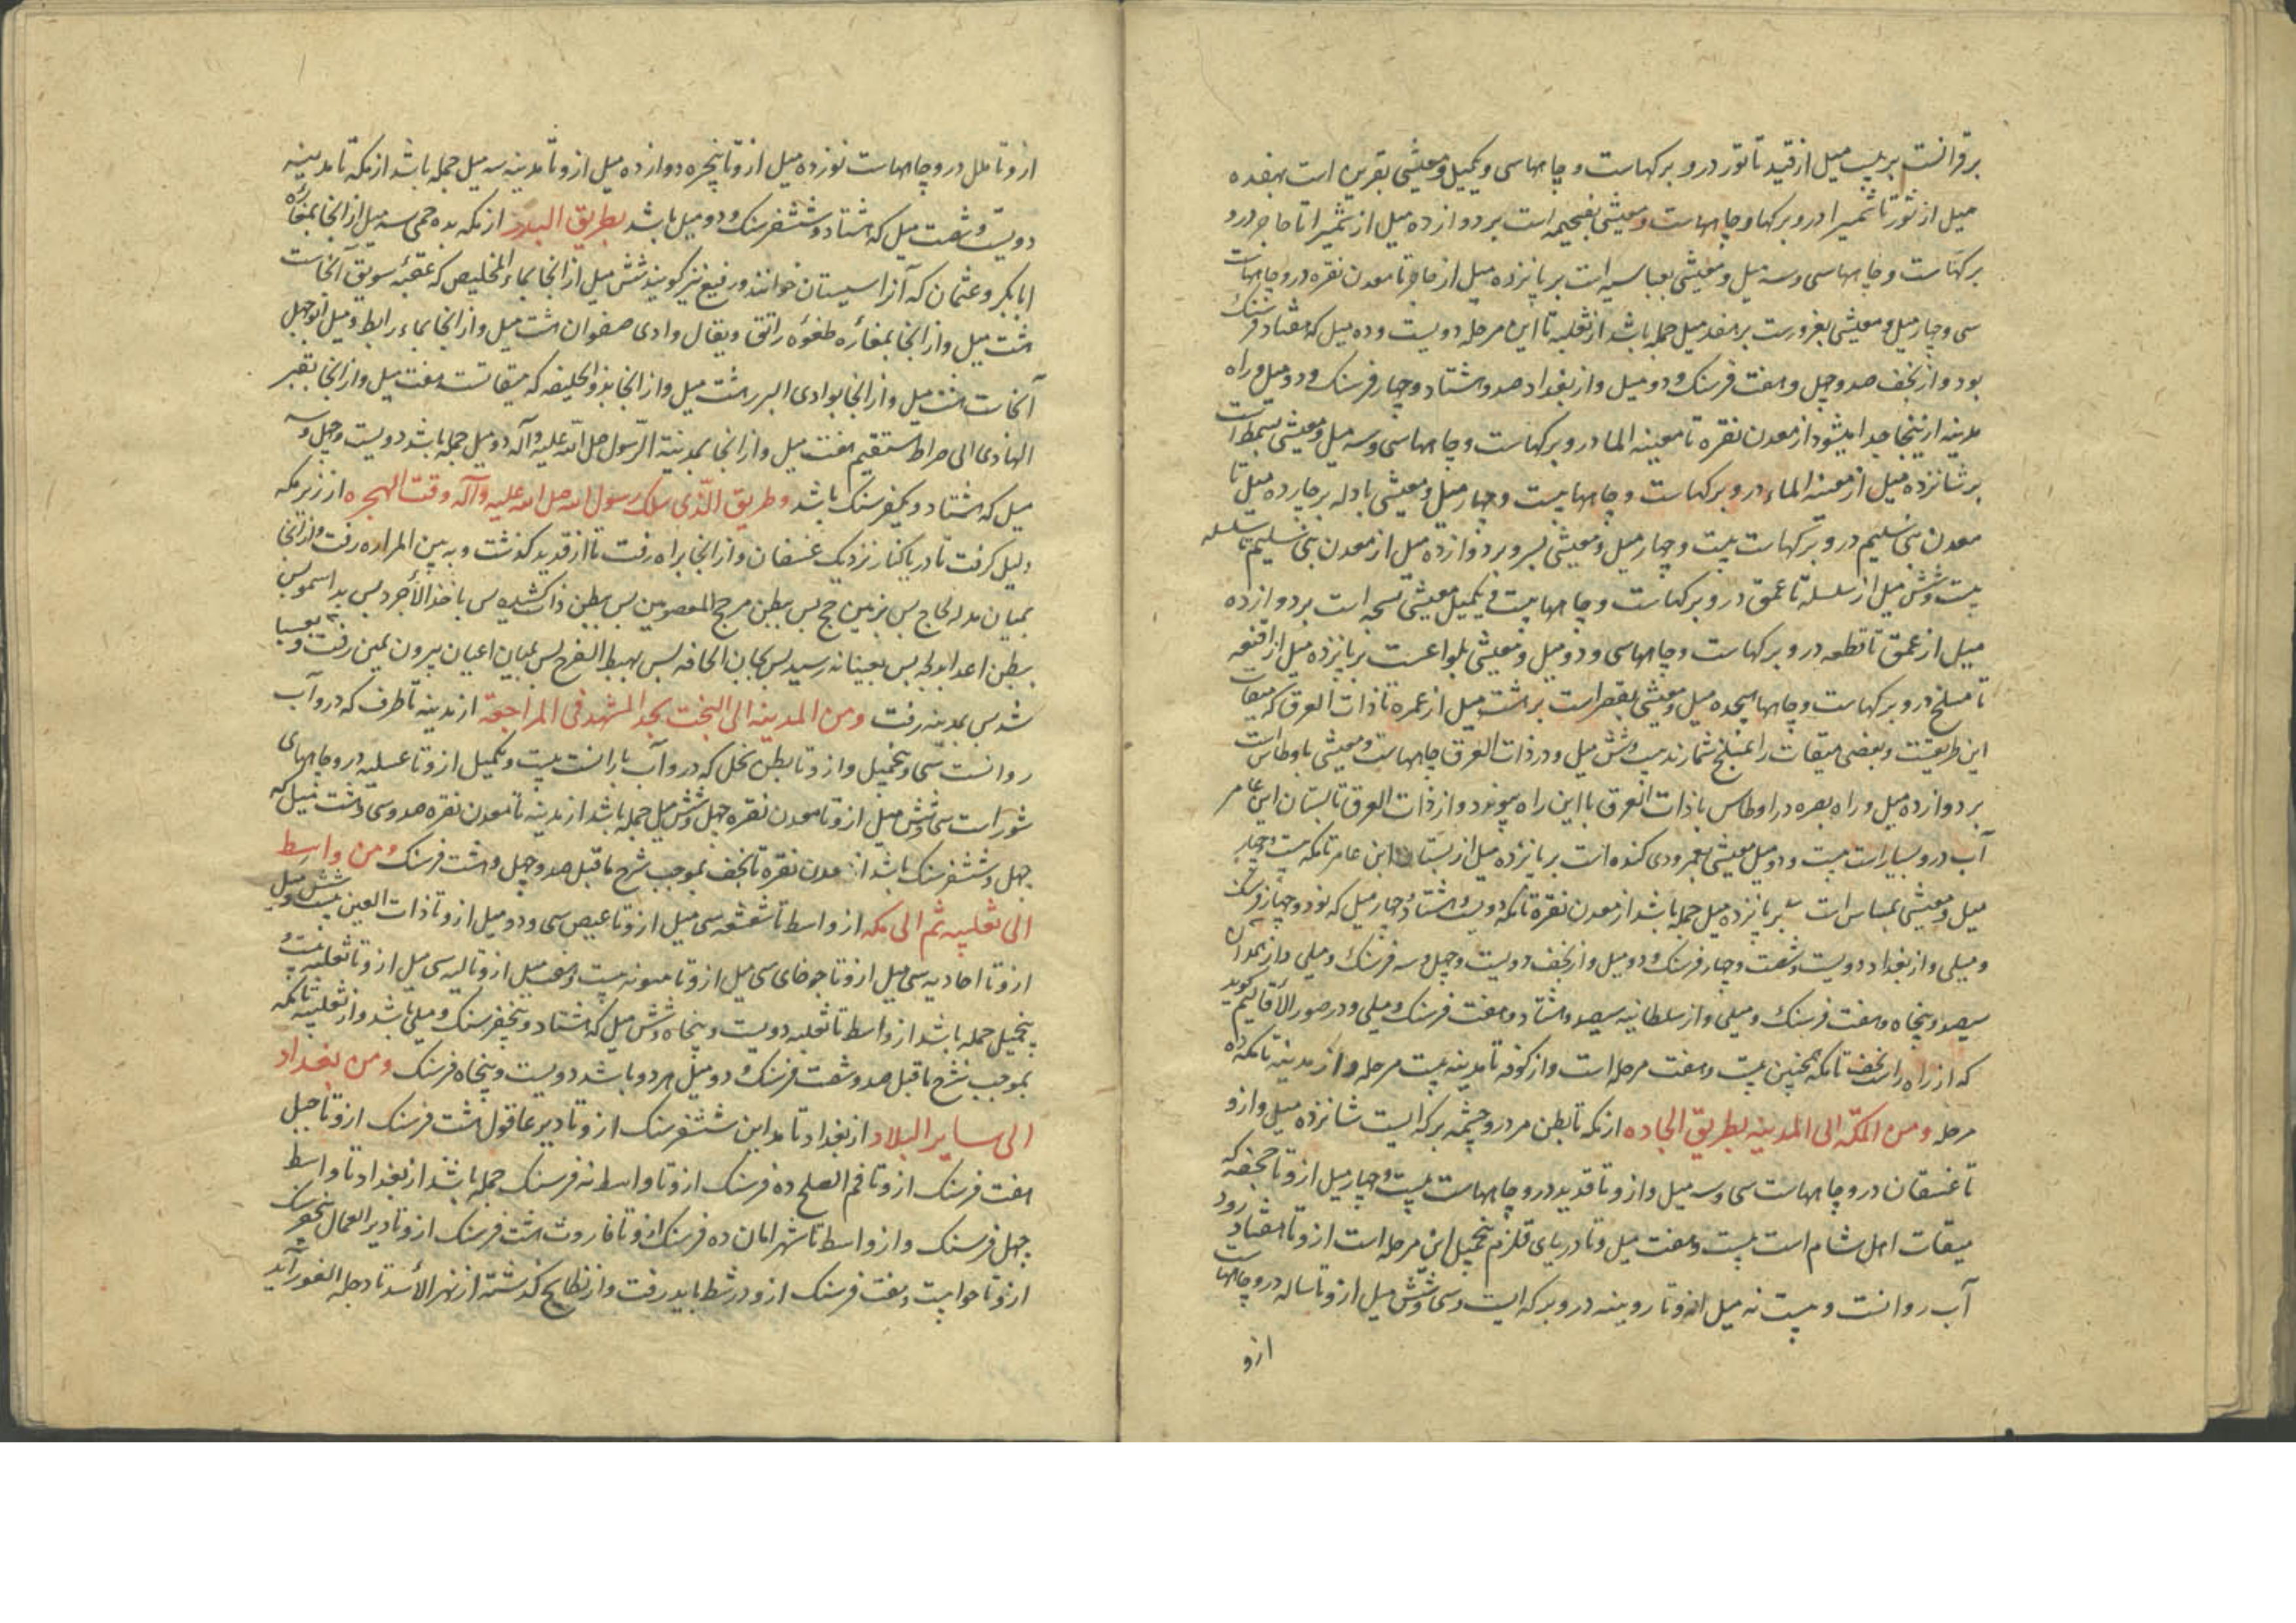 برقرانست بر بیست میل از قید تا توز درو برکهاست و چاهها سی و یکمیل و معیشی بقرین است هفده
میل از ثوز تا شمیرا درو برکها و چاههاست و معیشی بفحیمه است بر دوازده میل از شمیرا تا حاجر درو
برکهاست و چاهها سی و سه میل و معیشی بعباسیه است بر پانزده میل از حاجر تا معدن نقره درو چاههاست
سی و چهار میل و معیشی بغرورست بر هفده میل جمله باشد از ثعلبه تا این مرحله دویست و ده میل که هفتاد فرسنک
بود و از نجف صد و چهل و هفت فرسنک و دو میل و از بغداد صد و هشتاد و چهار فرسنک و دو میل و راه
مدینه ازینجا جدا میشود از معدن نقره تا مغیثه الما درو برکهاست و چاهها سی و سه میل و معیشی بسمط است
بر شانزده میل از مغیثه الماء درو برکهاست و چاهها بیست و چهار میل و معیشی بادله بر چهارده میل تا
معدن بنی سلیم درو برکهاست بیست و چهار میل و معیشی بسر و بر دوازده میل از معدن بنی سلیم تا سلسله
بیست و شش میل از سلسله تا عمق درو برکهاست و چاهها بیست و یکمیل معیشی بسحه است بر دوازده
میل از عمق تا قطعه درو برکهاست و چاهها سی و دو میل و معیشی بلواعست بر پانزده میل از اقنعه
تا مسلخ درو برکهاست و چاهها هیجده میل و معیشی بقصر است بر هشت میل از عمره تا ذات العرق که میقات
این طریقست و بعضی میقات را مسلخ شمارند بیست و شش میل و در ذات العرق چاههاست و معیشی باوطاس است
بر دوازده میل و راه بصره در اوطاس با ذات العرق با این راه پیوندد و از ذات العرق تا بستان ابن عامر
آب درو بسیار است بیست و دو میل معیشی بغمرودی کنده است بر پانزده میل از بستان ابن عامر تا مکه بیست و چهار
میل و معیشی بمساس است بر پانزده میل جمله باشد از معدن نقره تا مکه دویست و هشتاد و چهار میل که نود و چهار فرسنک
و میلی و از بغداد دویست و شصت و چهار فرسنک و دو میل و از نجف دویست و چهل و سه فرسنک و میلی و از همدان
سیصد و پنجاه و هفت فرسنک و میلی و از سلطانیه سیصد و هشتاد و هفت فرسنک و میلی و در صور الأقالیم کوید
که از راه راست نجف تا مکه همچنین بیست و هفت مرحله است و از کوفه تا مدینه بیست مرحله و از مدینه تا مکه ده
مرحله و من المکّه الی المدینه بطریق الجاده از مکه تا بطن مر درو چشمه و برکه ایست شانزده میل و ازو
تا عسفان درو چاههاست سی و سه میل و ازو تا قدید درو چاههاست بیست و چهار میل ازو تا جحفه که
میقات اهل شام است بیست و هفت میل و تا دریای قلزم پنجمیل این مرحله است ازو تا هفتاد رود
آب روانست و بیست نه میل ازو تا روینه درو برکه ایست و سی و شش میل ازو تا ساله درو چاههاست
ازو
ازو تا ملل درو چاههاست نوزده میل ازو تا پنجره دوازده میل ازو تا مدینه سه میل جمله باشد از مکه تا مدینه
دویست و شصت میل که هشتاد و ششفرسنک و دو میل باشد بطریق البدر از مکه بده حمی سه میل از انجا بمغاره
ابابکر و عثمان که آنرا سیستان خوانند و رفیع نیز کویند شش میل از انجا بماء المخلیص که عقبه سویق آنجاست
هشت میل و از انجا بمغاره طغوه راتق و یقال وادی صفوان هشت میل و از انجا بماء رابط و میل ابوجهل
آنجاست هشت میل و از انجا بوادی البرر هشت میل و از انجا بذو الحلیفه که میقاتست هفت میل و از انجا بقبر
الهادی الی صراط مستقیم هفت میل و از انجا بمدینة الرّسول صلی الله علیه و آله دو میل جمله باشد دویست و چهل و سه
میل که هشتاد و یکفرسنک باشد و طریق الّذی سلک رسول الله صل الله علیه و آله وقت الهجره از زبر مکه
دلیل کرفت تا دریا کنار نزدیک عسفان و از انجا براه رفت تا از قدید کذشت و به بین المراره رفت و از انجا
بمیان مدله لحاج پس بزمین حج پس ببطن مرجح المعصومین پس ببطن ذات کشد پس باخذ الأجرد پس بد اسمو پس
ببطن اعدا بو لجه پس بعیثانه رسید پس بجان الحافه پس بهبط الفرح پس بمیان اعیان بیرون یمین رفت و به تعبیا
شد پس بمدینه رفت و من المدینه الی النجف بجد المشهد فی المراجعة از مدینه تا طرف که درو آب
روانست سی و پنجمیل و ازو تا بطن نخل که درو آب بارانست بیست و یکمیل ازو تا عسلیه درو چاههای
شور است سی و شش میل ازو تا معدن نقره چهل و شش میل جمله باشد از مدینه تا معدن نقره صد و سی و هشت میل که
چهل و ششفرسنک باشد از معدن نقره تا نجف بموجب شرح ماقبل صد و چهل و هشت فرسنک و من واسط
الی ثعلبیه ثم الی مکه از واسط تا شعشعه سی میل ازو تا عیص سی و دو میل ازو تا ذات العین بیست و شش میل
ازو تا احادیه سی میل ازو تا جوخای سی میل ازو تا میونه بیست و هفت میل ازو تا لیه سی میل ازو تا ثعلبیه بیست و
پنجمیل جمله باشد از واسط تا ثعلبه دویست و پنجاه و شش میل که هشتاد و پنجفرسنک و میلی باشد و از ثعلبیه تا مکه
بموجب شرح ماقبل صد و شصت فرسنک و دو میل هر دو باشد دویست و پنجاه فرسنک و من بغداد
الی سایر البلاد از بغداد تا مداین ششفرسنک ازو تا دیر عاقول هشت فرسنک ازو تا جبل
هفت فرسنک ازو تا فم الصلح ده فرسنک ازو تا واسط نه فرسنک جمله باشد از بغداد تا واسط
چهل فرسنک و از واسط تا شهر امان ده فرسنک ازو تا فاروث هشت فرسنک ازو تا دیر العمال پنجفرسنک
ازو تا حوا بیست و هفت فرسنک ازو در شط باید رفت و از بطایح کذشته از نهر الأسد تا دجله العورآید